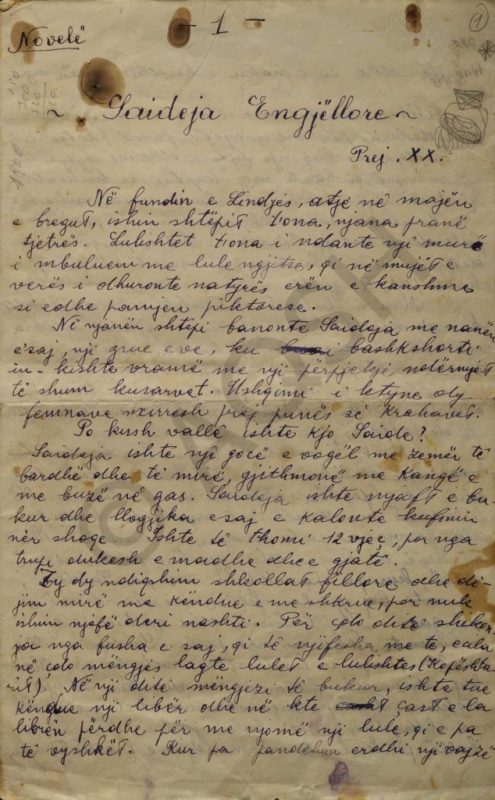 - 1 -
1
Novelë
~ Saideja Engjëllore ~
Prej .XX.
Në fundin e Lindjes, atje në majën
e bregut, ishin shtëpit t'ona, njana pranë
tjetrës. Lulishtet t'ona i ndante një murë
i mbuluem me lule ngjitse, qi në muejt e
verës i dhuronte natyrës erën e kandshme
si edhe pamjen piktorese.
Në njanën shtëpi banonte Saideja me nanën
e saj nji grue e ve, ku bashkshorti
iu kishte vramë me nji përpjekje, ndërmjet
të shum kusarvet. Ushqimi i ketyne dy
femnave nxirresh prej punës së Krahavet.
Po kush vallë ishte kjo Saide?
Saideja ishte nji gocë e vogël me zemër të
bardhë dhe të mirë, gjithmonë me Kangë e
me buzë në gas. Saideja ishte mjaft e bu-
kur dhe llogjika e saj e kalonte kufinin
nër shoqe. Ishte të thomi 12 vjeç, por nga
trupi dukesh e madhe dhe e gjatë.
Ty dy ndiqshim shkollat fillore dhe di-
jim mirë me këndue e me shkrue, por nuk
ishim njofë deri nashti. Për çdo ditë
nga fusha e saj, qi të njifesha me te, e cila
në çdo mëngjes lagte lulet e lulishtes (Kopësh-
tit). Në nji ditë mëngjezi të bukur, ishte tue
këndue nji libër dhe në kte çast e la
librën përdhe për me njomë nji lule, qi e pa
të vyshkët. Kur pa pandehun erdhi nji vajzë